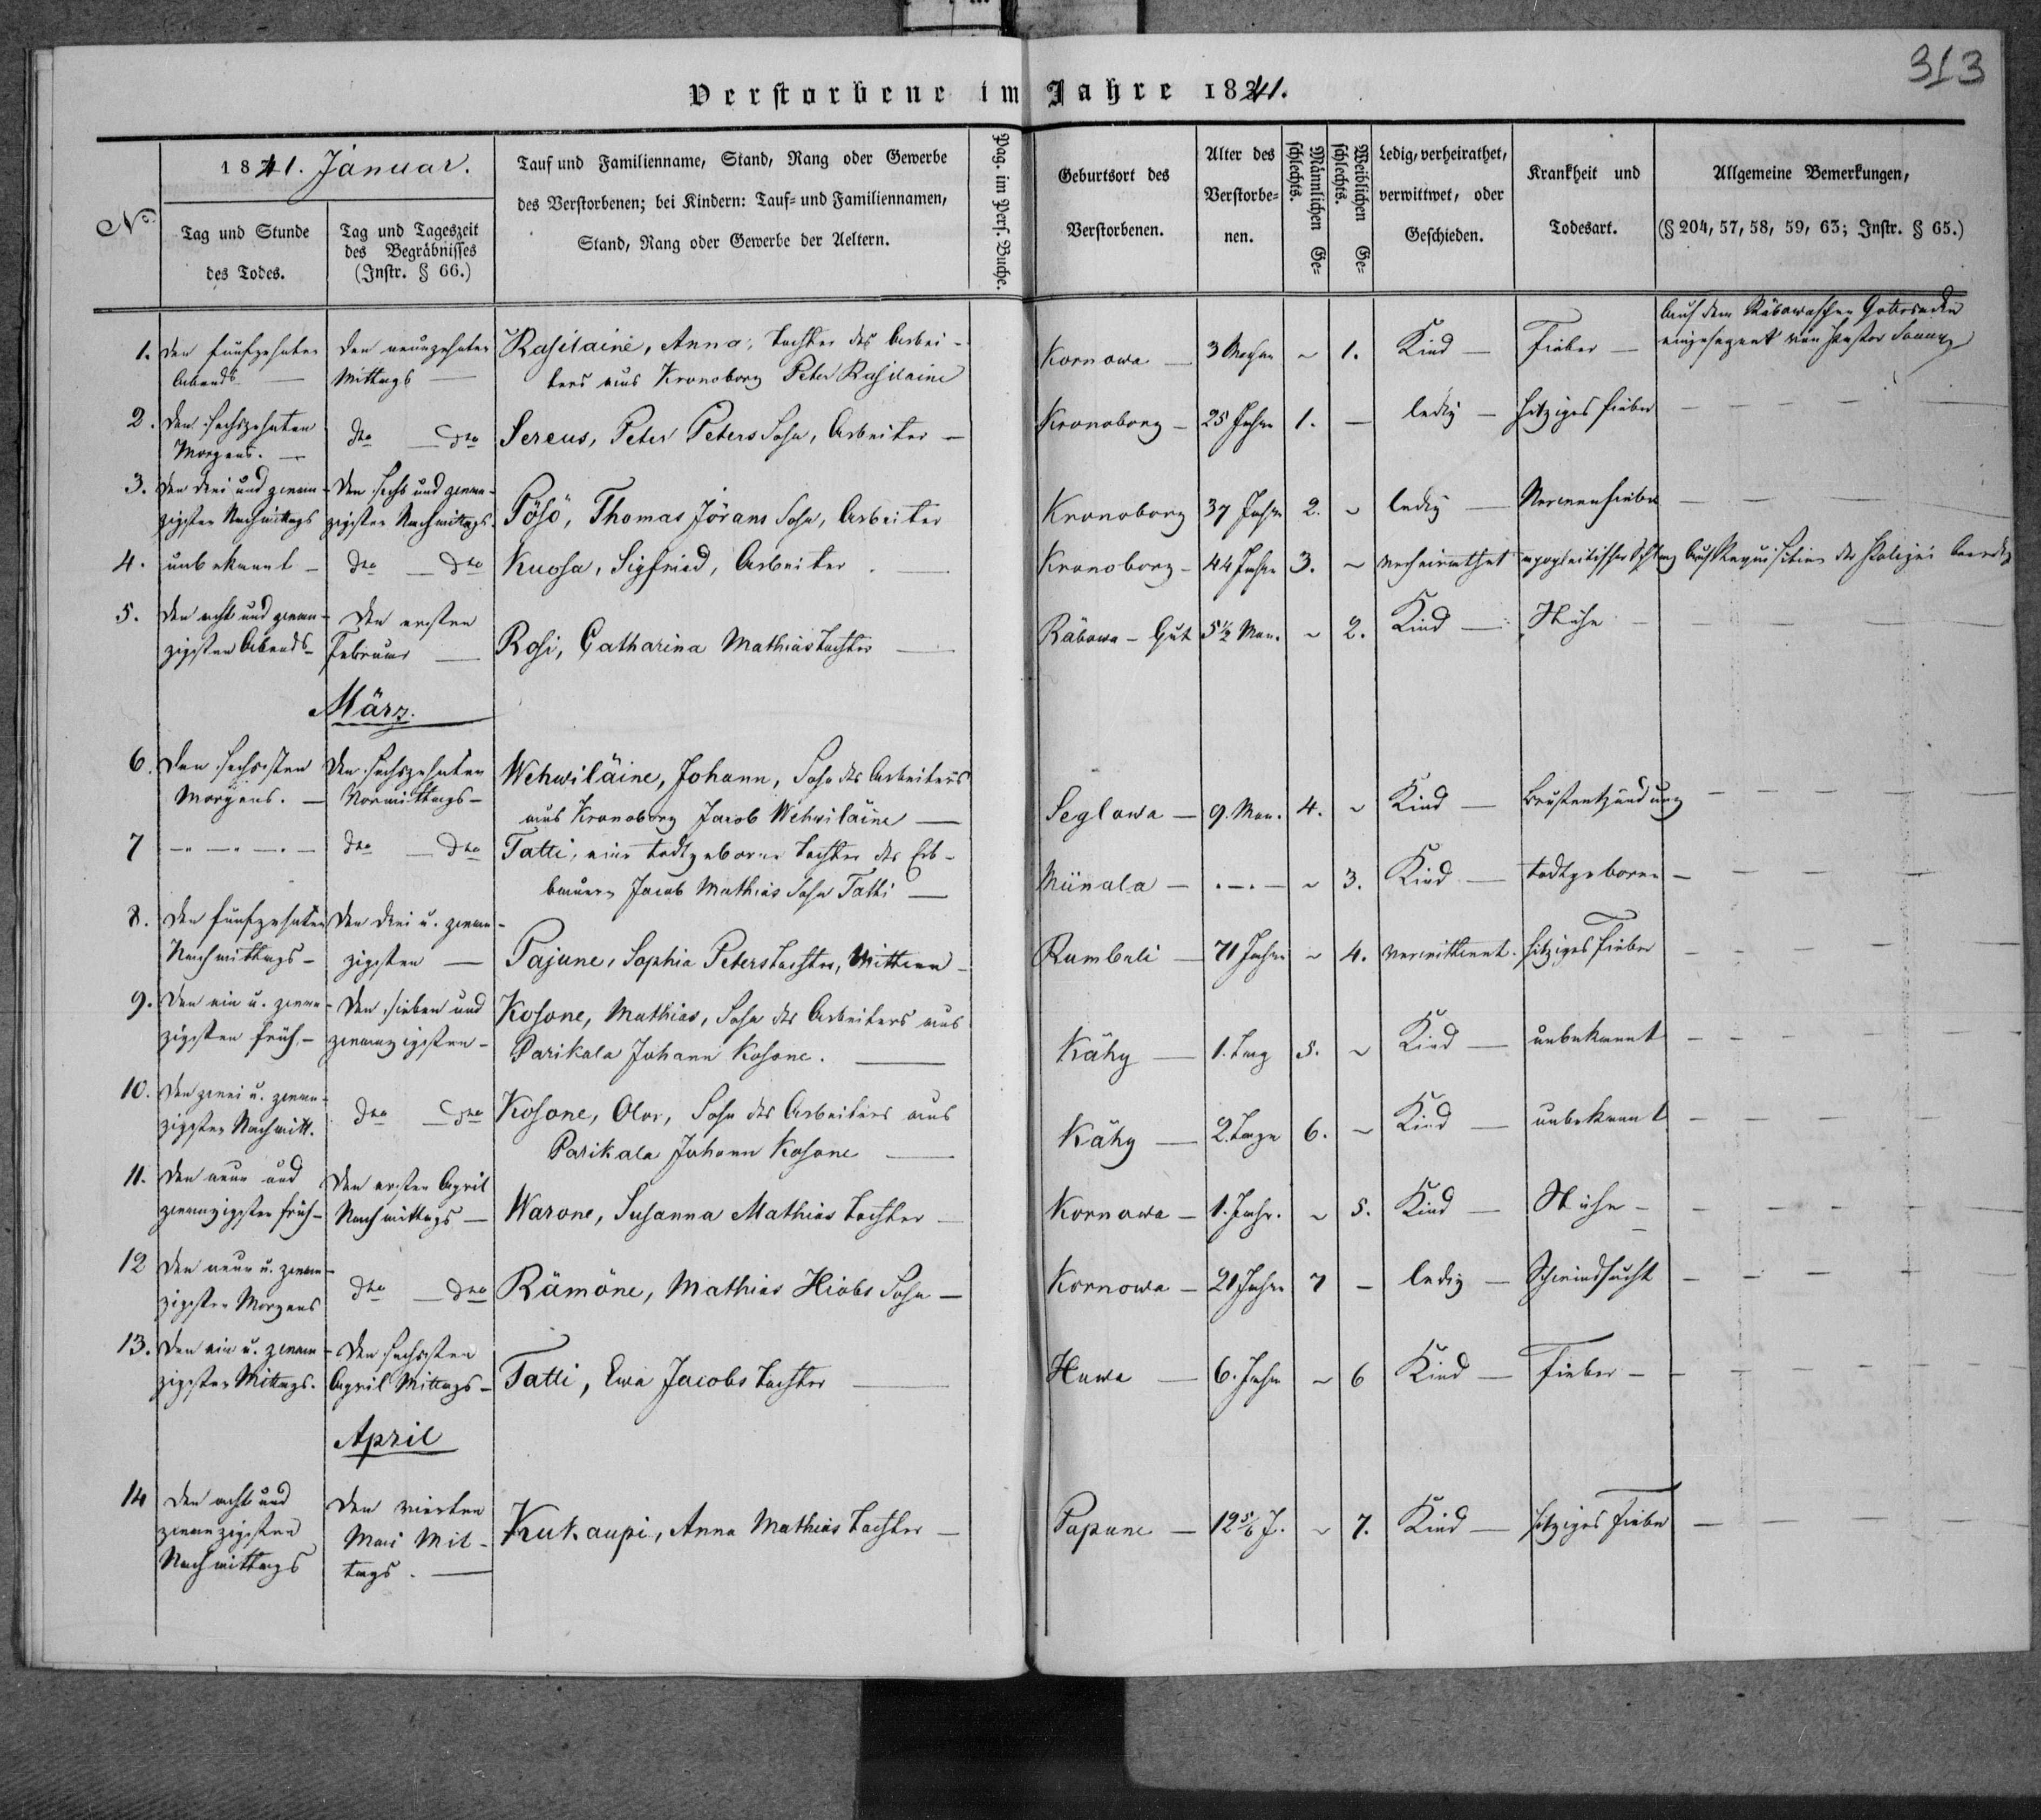 313
Verstorbene im Jahre 1841.
No.
1841. Januar.
Tag und Stunde
des Todes.
Tag und Tageszeit
des Begräbnisses
(Instr. § 66.)
Tauf und Familienname, Stand, Rang oder Gewerbe
des Verstorbenen; bei Kindern: Tauf- und Familiennamen,
Stand, Rang oder Gewerbe der Aeltern.
Pag. im Pers. Buche.
Geburtsort des
Verstorbenen.
Alter des
Verstorbe-
nen.
Männlichen Ge-
schlechts.
Weiblichen Ge-
schlechts.
Ledig, verheirathet,
verwittwet, oder
Geschieden.
Krankheit und
Todesart.
Allgemeine Bemerkungen,
(§ 204, 57, 58, 59, 63; Instr. § 65.)
1. den fünfzehnten
Abends —
den neunzehnten
Mittags —
Rasilaine, Anna, Tochter des Arbei-
ters aus Kronoborg Peter Rasilaine
Kornowa — 3 Wochen ~ 1. Kind — Fieber —
Auf dem Räbowaschen Gottesacker
eingesegnet von Pastor
2. den sechszehnten
Morgens. —
dto — dto
Sereus, Peter Peters Sohn, Arbeiter —
Kronoborg — 25 Jahre 1. — ledig — hitziges Fieber — — — —
3. den drei und zwan-
zigsten Nachmittags
den sechs und zwan-
zigsten Nachmittags.
Pösö, Thomas Jörans Sohn, Arbeiter
Kronoborg 37 Jahre 2. ~ ledig — Nervenfieber — — — —
4. unbekannt —
dto — dto
Kuosa, Sigfried, Arbeiter. —
Kronoborg — 44 Jahre 3. ~ verheirathet apoplectischer Schlag Auf Requisition der Polizei beerdigt
5. den acht und zwan-
zigsten Abends —
den ersten
Februar —
Rosi, Catharina Mathias Tochter —
Räbowa — Gut 5½ Mon. ~ 2. Kind — — — — —
März.
6. den sechsten
Morgens. —
den sechszehnten
Vormittags —
Wehwiläine, Johann, Sohn des Arbeiters
aus Kronoborg Jacob Wehwiläine —
Seglowa — 9. Mon. 4. ~ Kind — Brustentzündung — — — —
7 — . — . — . —
dto — dto
Tatti, eine todtgeborne Tochter des Erb-
bauern Jacob Mathias Sohn Tatti —
Miinala — . — . — ~ 3. Kind — todtgeboren — — — —
8. den fünfzehnten
Nachmittags —
den drei u. zwan-
zigsten —
Pajune, Sophia Peters Tochter, Wittwe —
Rumbuli — 71 Jahre ~ 4. verwittwet. hitziges Fieber — — — —
9. den ein u. zwan-
zigsten früh. —
den sieben und
zwanzigsten —
Kosone, Mathias, Sohn des Arbeiters aus
Parikala Johann Kosone. —
Kähy — 1. Tag 5. ~ Kind — unbekannt — — — —
10. den zwei u. zwan-
zigsten Nachmitt.
dto — dto
Kosone, Olov, Sohn des Arbeiters aus
Parikala Johann Kosone —
Kähy — 2. Tage 6. ~ Kind — unbekannt — — — —
11. den neun und
zwanzigsten früh —
den ersten April
Nachmittags —
Warone, Susanna Mathias Tochter —
Kornowa — 1. Jahr. ~ 5. Kind — — — — —
12 den neun u. zwan-
zigsten Morgens
dto — dto
Rämöne, Mathias Hiobs Sohn —
Kornowa — 21 Jahre 7 — ledig — Schwindsucht — — — —
13. den ein u. zwan-
zigsten Mittags.
den sechsten
April Mittags —
Tatti, Ewa Jacobs Tochter —
Huwa — 6. Jahre ~ 6 Kind — Fieber — — — —
April
14 den acht und
zwanzigsten
Nachmittags
den vierten
Mai Mit-
tags. —
Kukaupi, Anna Mathias Tochter —
Papune — 12 5/6 J. ~ 7. Kind — hitziges Fieber — — — —